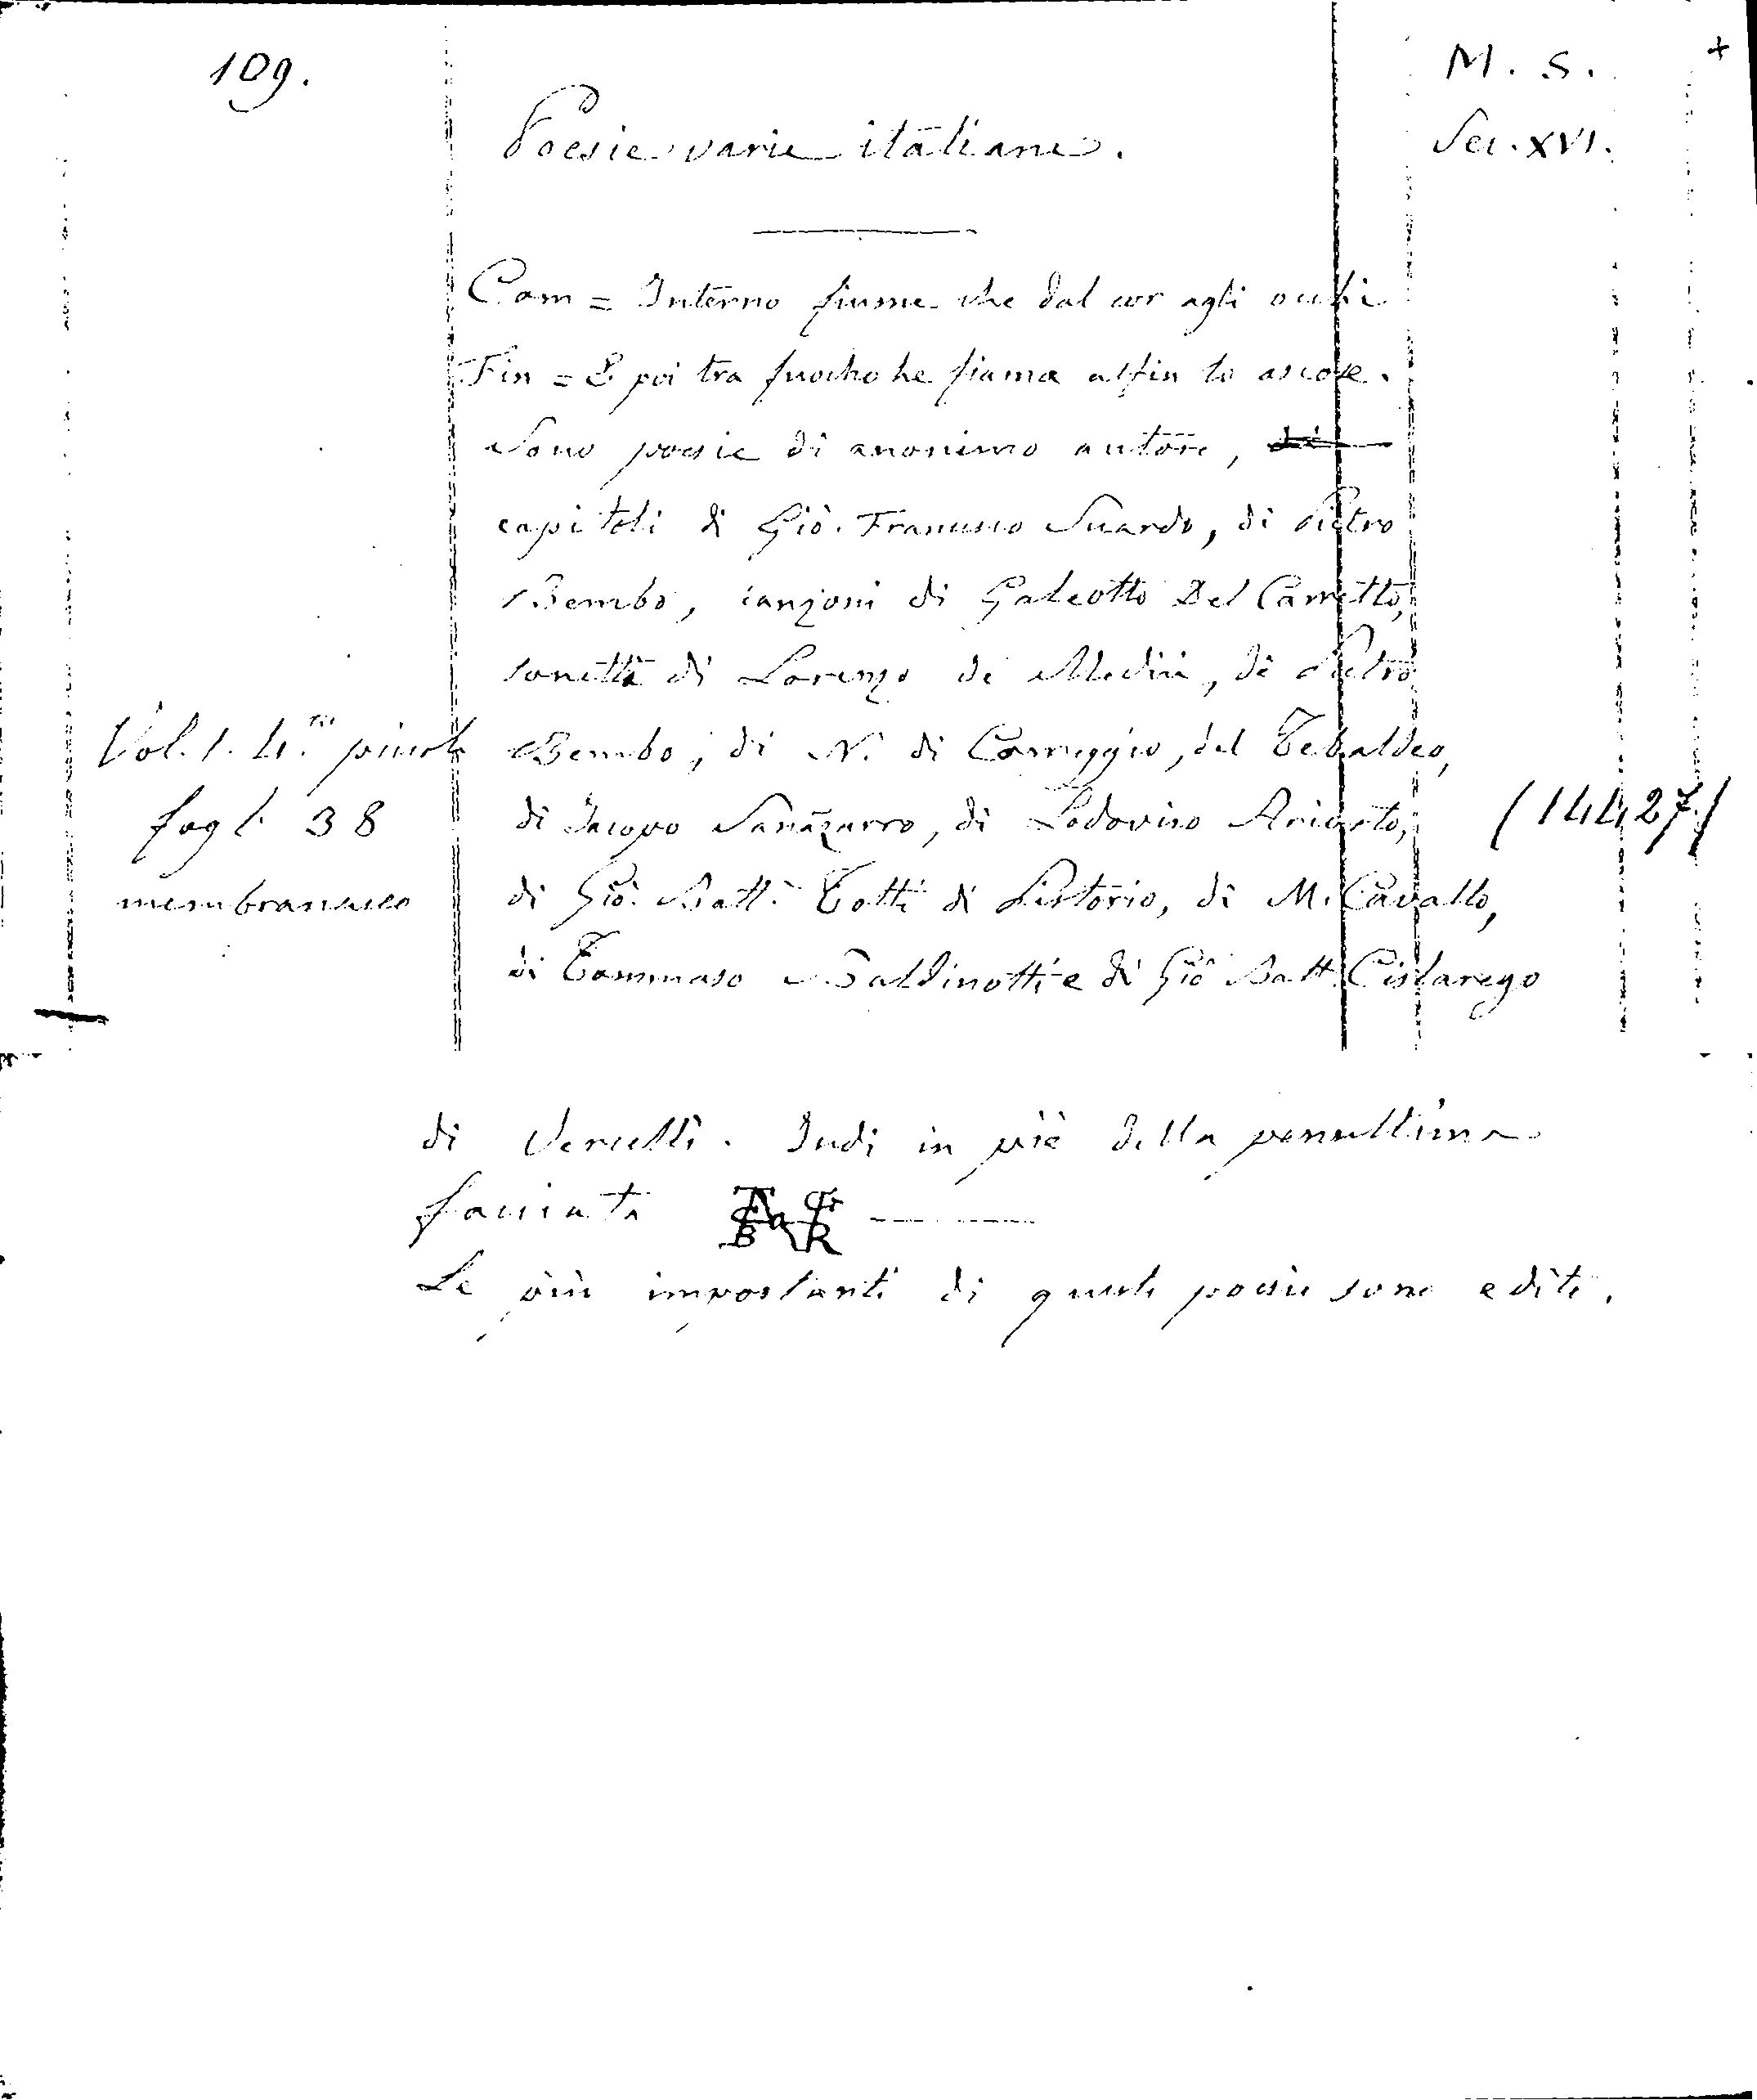 109.
M. S. +
Poesie varie italiane.
Sec. XVI.
Com = Interno fiume che dal cor agli occhi
Fin = E poi tra fuocho he fiama alfin lo ascose.
Sono poesie di anonimo autore,
capitoli di Giò. Francesco Suardo, di Pietro
Bembo, canzoni di Galeotto Del Carretto,
sonetti di Lorenzo de Medici, di Pietro
Vol. 1. 4.to piccolo
Bembo, di N. di Correggio, del Tebaldeo,
fogl. 38
di Jacopo Sanazarro, di Lodovico Ariosto,
(14427)
membranaceo
di Giò. Batt. Gotti di Pistorio, di M. Cavallo,
di Tommaso Baldinotti e di Giò Batt. Cislarego
di Vercelli. Indi in piè della penultima
facciata
Le più importanti di queste poesie sono edite.